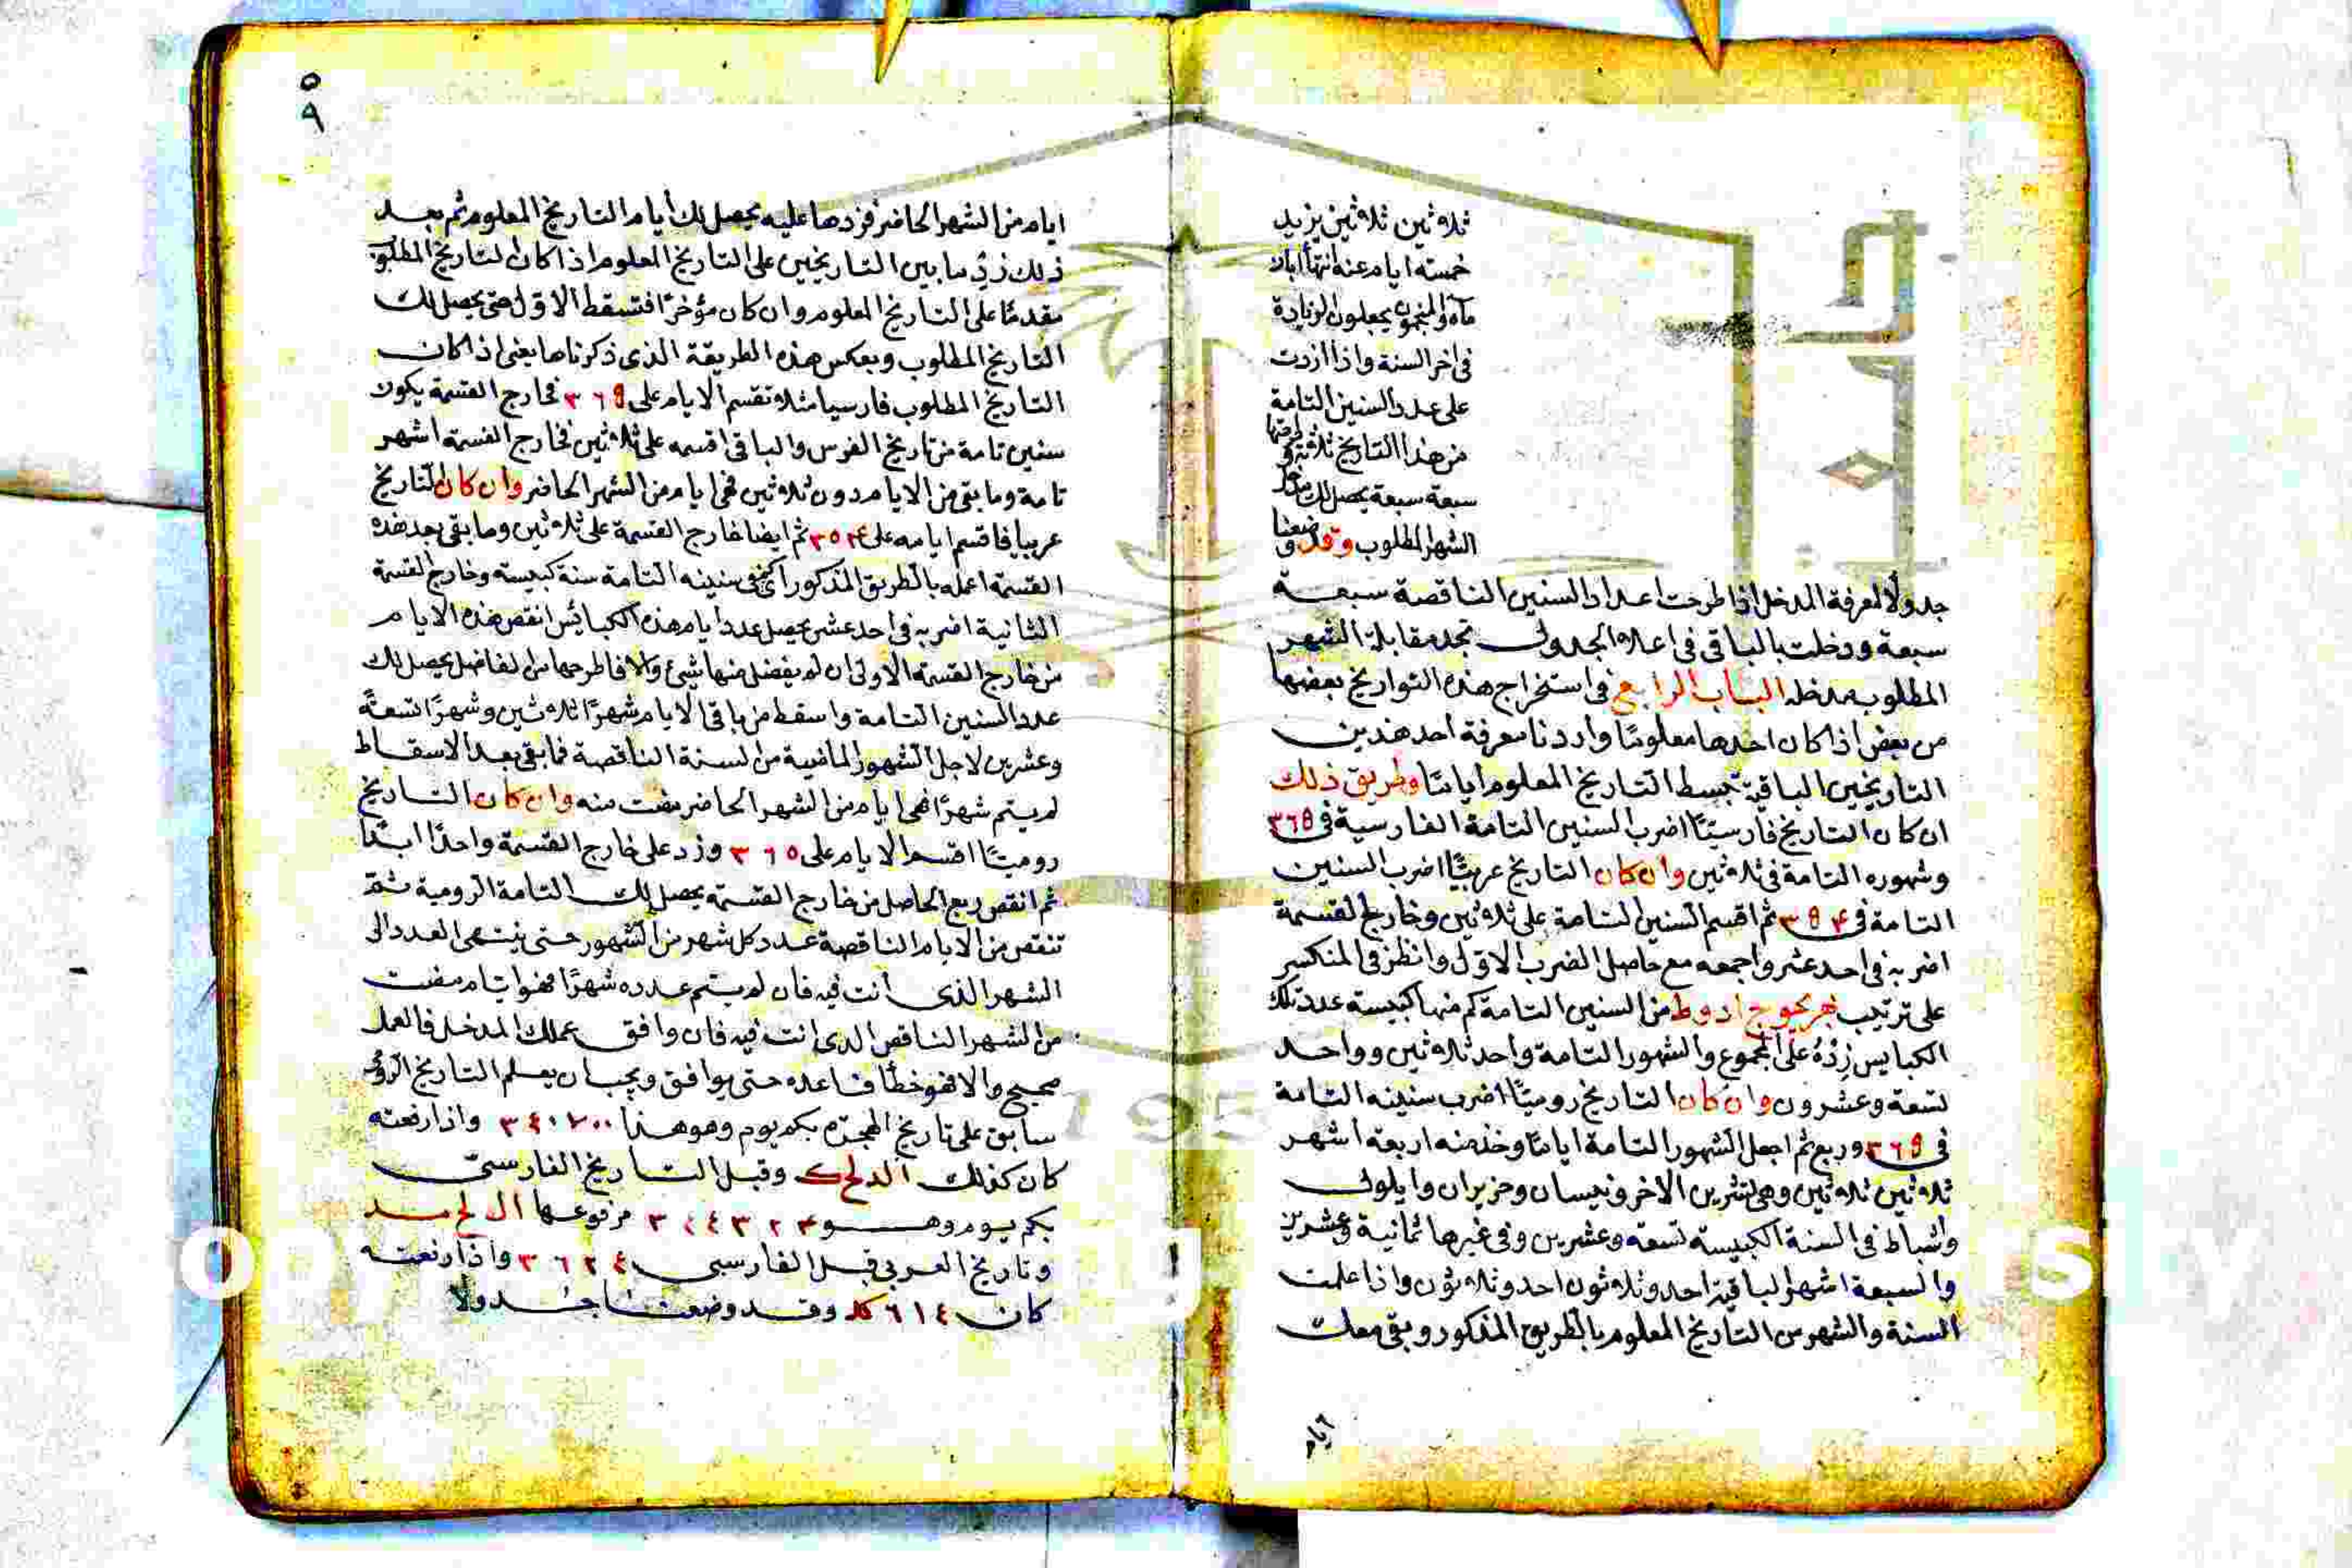 ثلاثين ثلاثين يزيد
خمسة ايام عند انتها ابان
ماه والمنجمون يجعلون الزيادة
فى اخر السنة واذا اردت
على عدد السنين التامة
من هذا التاريخ ثلاثة وطرحتها
سبعة سبعة يحصل لك مدخل
الشهر المطلوب وقد وضعنا
جدولا لمعرفة المدخل اذا طرحت اعداد السنين الناقصة سبعة
سبعة ودخلت بالباقى فى اعلاه الجدول تجد مقابلة الشهر
المطلوب مدخله الباب الرابع فى استخراج هذه التواريخ بعضها
من بعض اذا كان احدها معلومًا واردنا معرفة احد هذين
التاريخين الباقية تبسط التاريخ المعلوم ايامًا وطريق ذلك
ان كان التاريخ فارسيًا اضرب السنين التامة الفارسية فى ٣٦٥
وشهوره التامة فى ثلاثين وان كان التاريخ عربيًا اضرب السنين
التامة فى ٣٥٤ ثم اقسم السنين التامة على ثلاثين وخارج القسمة
اضربه فى احد عشر واجمعه مع حاصل الضرب الاول وانظر فى المنكسر
على ترتيب بهزيجوج ادوط من السنين التامة كم منها كبيسة عدد تلك
الكبايس زِدْهُ على المجموع والشهور التامة واحد ثلاثين وواحد
تسعة وعشرون وان كان التاريخ روميًا اضرب سنينه التامة
فى ٣٦٥ وربع ثم اجعل الشهور التامة ايامًا وخذ منه اربعة اشهر
ثلاثين ثلاثين وهى تشرين الاخر ونيسان وحزيران وايلول
واشباط فى السنة الكبيسة تسعة وعشرين وفى غيرها ثمانية وعشرين
والسبعة اشهر الباقية احد وثلاثون احد وثلاثون واذا علمت
السنة والشهر من التاريخ المعلوم بالطريق المذكور وبقى معك
ايام
٥
٩
ايام من الشهر الحاضر فزدها عليه يحصل لك أيام التاريخ المعلوم ثم بعد
ذلك زِدْ ما بين التاريخين على التاريخ المعلوم اذا كان التاريخ المطلوب
مقدمًا على التاريخ المعلوم وان كان مؤخرًا فتسقط الاول حتى يحصل لك
التاريخ المطلوب وبعكس هذه الطريقة الذى ذكرناها يعنى اذا كان
التاريخ المطلوب فارسيا مثلا تقسم الايام على ٣٦٥ فخارج القسمة يكون
سنين تامة من تاريخ الفرس والباقى اقسمه على ثلاثين فخارج القسمة اشهر
تامة وما بقى من الايام دون ثلاثين فهى ايام من الشهر الحاضر وان كان التاريخ
عربيا فاقسم ايامه على ٣٥٤ ثم ايضا خارج القسمة على ثلاثين وما بقى بعد هذه
القسمة اعمله بالطريق المذكور اى كم فى سنينه التامة سنة كبيسة وخارج القسمة
الثانية اضربه فى احد عشر يحصل عدد ايام هذه الكبائس انقص هذه الايام
من خارج القسمة الاولى ان لم يفضل منها شئ والا فاطرحها من الفاضل يحصل لك
عدد السنين التامة واسقط من باقى الايام شهرًا ثلاثين وشهرًا تسعة
وعشرين لاجل الشهور الماضية من السنة الناقصة فما بقى بعد الاسقاط
لم يتم شهرًا فهى ايام من الشهر الحاضر مضت منه وان كان التاريخ
روميًا اقسم الايام على ٣٦٥ وزد على خارج القسمة واحدًا ابدًا
ثم انقص ربع الحاصل من خارج القسمة يحصل لك التامة الرومية ثم
تنقص من الايام الناقصة عدد كل شهر من الشهور حتى ينتهى العدد الى
الشهر الذى انت فيه فان لم يتم عدده شهرًا فهو ايام مضت
من الشهر الناقص الذى انت فيه فان وافق عملك المدخل فالعمل
صحيح والا فهو خطأ فاعده حتى يوافق ويجب ان يعلم التاريخ الرومى
سابق على تاريخ الهجرة بكم يوم وهو هذا ٣٤٠٧٠٠ واذا رفعته
كان كذلك الدلح ك وقبل التاريخ الفارسى
بكم يوم وهو ٣٤٤٣٢٤ مرفوعها ال لح مد
وتاريخ العربى قبل الفارسى ٣٦٢٤ واذا رفعته
كان ٦١٤ كد وقد وضعنا جدولا